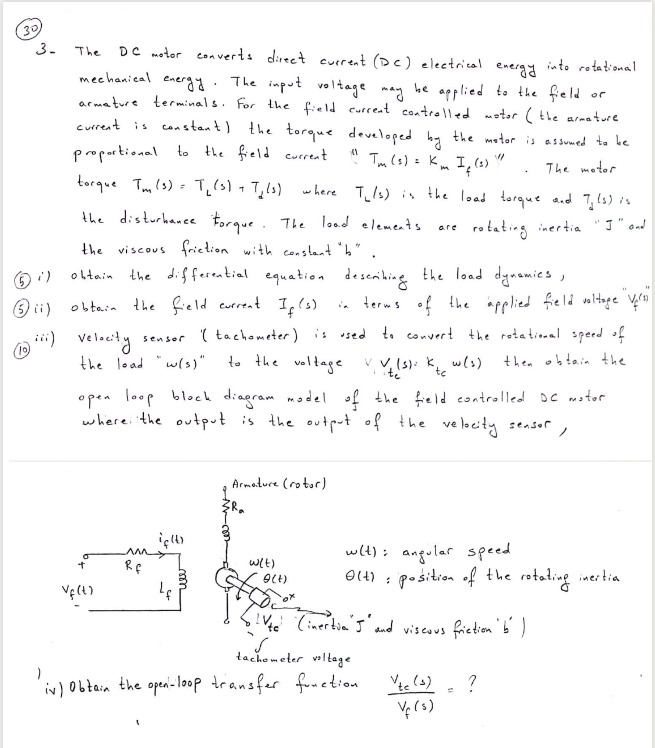 30
3- The DC motor converts direct current (DC) electrical energy into rotational
mechanical energy. The input voltage may be applied to the field or
armature terminals. For the field current controlled motor (the armature
current is constant) the torque developed by the motor is assumed to be
proportional to the field current " Tm(s) = Km If(s) ". The motor
torque Tm(s) = TL(s) + Td(s) where TL(s) is the load torque and Td(s) is
the disturbance torque. The load elements are rotating inertia "J" and
the viscous friction with constant "b".
5 i) obtain the differential equation describing the load dynamics,
5 ii) obtain the field current If(s) in terms of the applied field voltage "Vf(s)"
10 iii) velocity sensor (tachometer) is used to convert the rotational speed of
the load "w(s)" to the voltage Vtc(s) = Ktc w(s) then obtain the
open loop block diagram model of the field controlled DC motor
where the output is the output of the velocity sensor,
Armature (rotor)
Ra
if(t)
Rf
w(t)
θ(t)
w(t): angular speed
θ(t): position of the rotating inertia
+
Vf(t)
-
Lf
Vtc
(inertia "J" and viscous friction 'b')
tachometer voltage
iv) Obtain the open-loop transfer function Vtc(s) / Vf(s) = ?